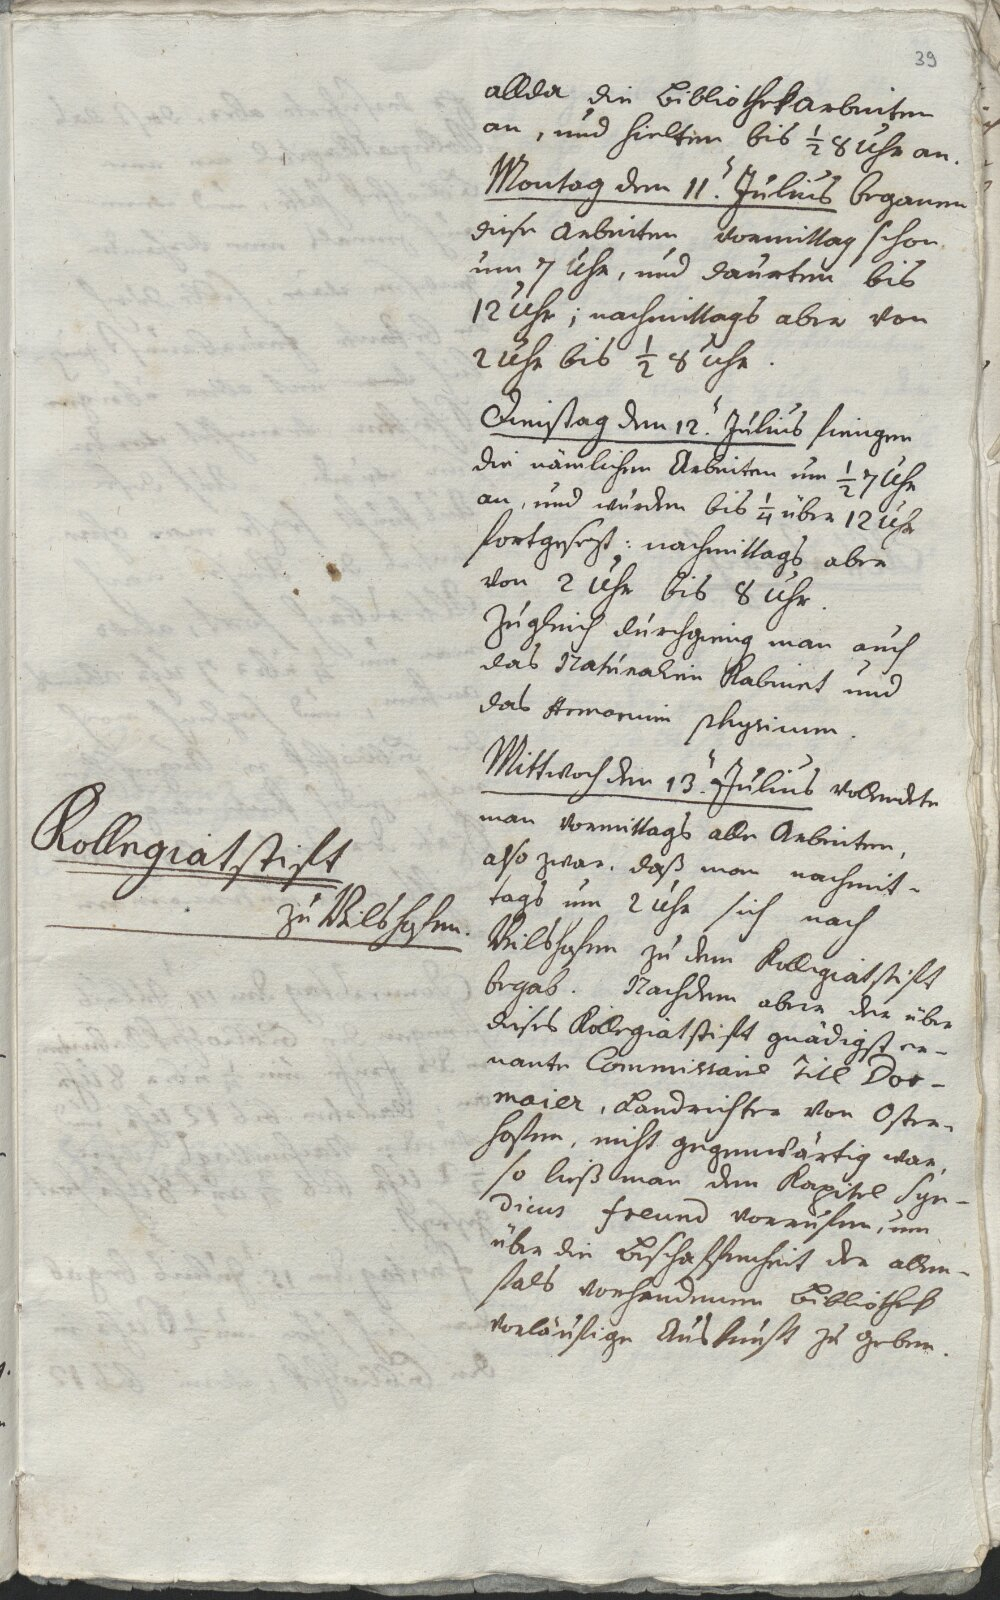 39
allda die Bibliothekarbeiten
an, und hielten bis 1/2 8 Uhr an.
Montag den 11. Julius beganen
diese Arbeiten vormittag schon
um 7 Uhr, und daurten bis
12 Uhr; nachmittags aber von
2 Uhr bis 1/2 8 Uhr.
Dienstag den 12. Julius fiengen
die nämlichen Arbeiten um 1/2 7 Uhr
an, und wurden bis 1/4 über 12 Uhr
fortgesezt: nachmittags aber
von 2 Uhr bis 8 Uhr.
Zugleich durchgieng man auch
das Naturalien Kabinet und
das Armarium physicum.
Mittwoch den 13. Julius vollendete
man vormittags alle Arbeiten,
also zwar, daß man nachmit-
tags um 2 Uhr sich nach
Kollegiatstift
zu Vilshofen.
Vilshofen zu dem Kollegiatstift
begab. Nachdem aber der über
dieses Kollegiatstift gnädigst er-
nante Commissaire Titl Dor-
maier, Landrichter von Oster-
hofen, nicht gegenwärtig war,
so ließ man den Kapitel Syn-
dicus Freund vorrufen, um
über die Beschaffenheit der allen-
fals vorhandenen Bibliothek
vorläufige Auskunft zu geben.